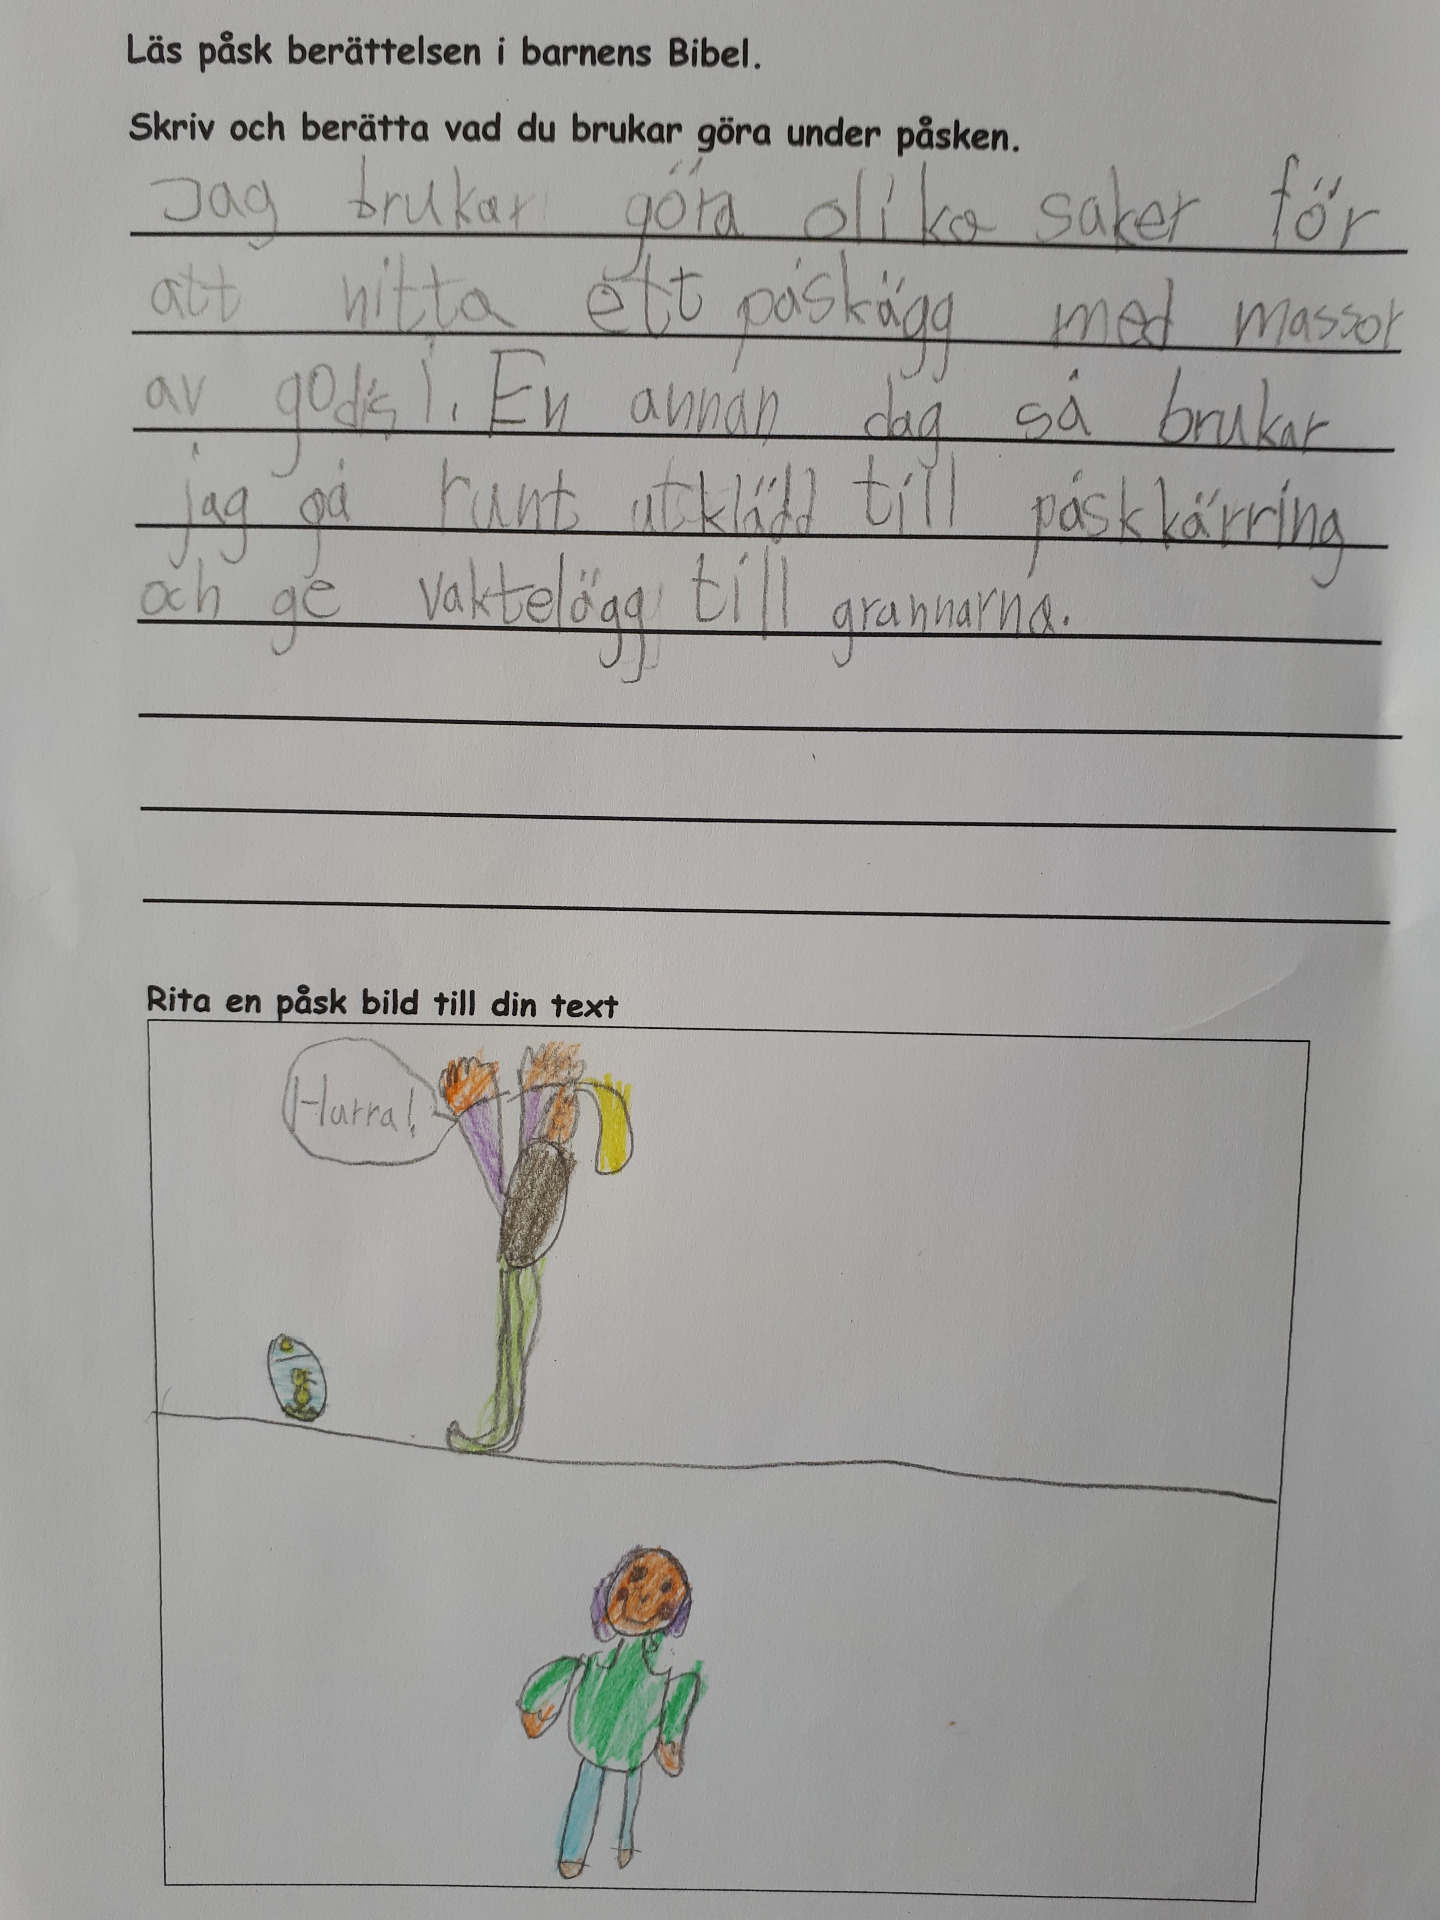 Läs påsk berättelsen i barnens Bibel.
Skriv och berätta vad du brukar göra under påsken.
Jag brukar göra olika saker för
att hitta ett påskägg med massor
av godis i. En annan dag så brukar
jag gå runt utklädd till påskkärring
och ge vaktelägg till grannarna.
Rita en påsk bild till din text
Hurra!